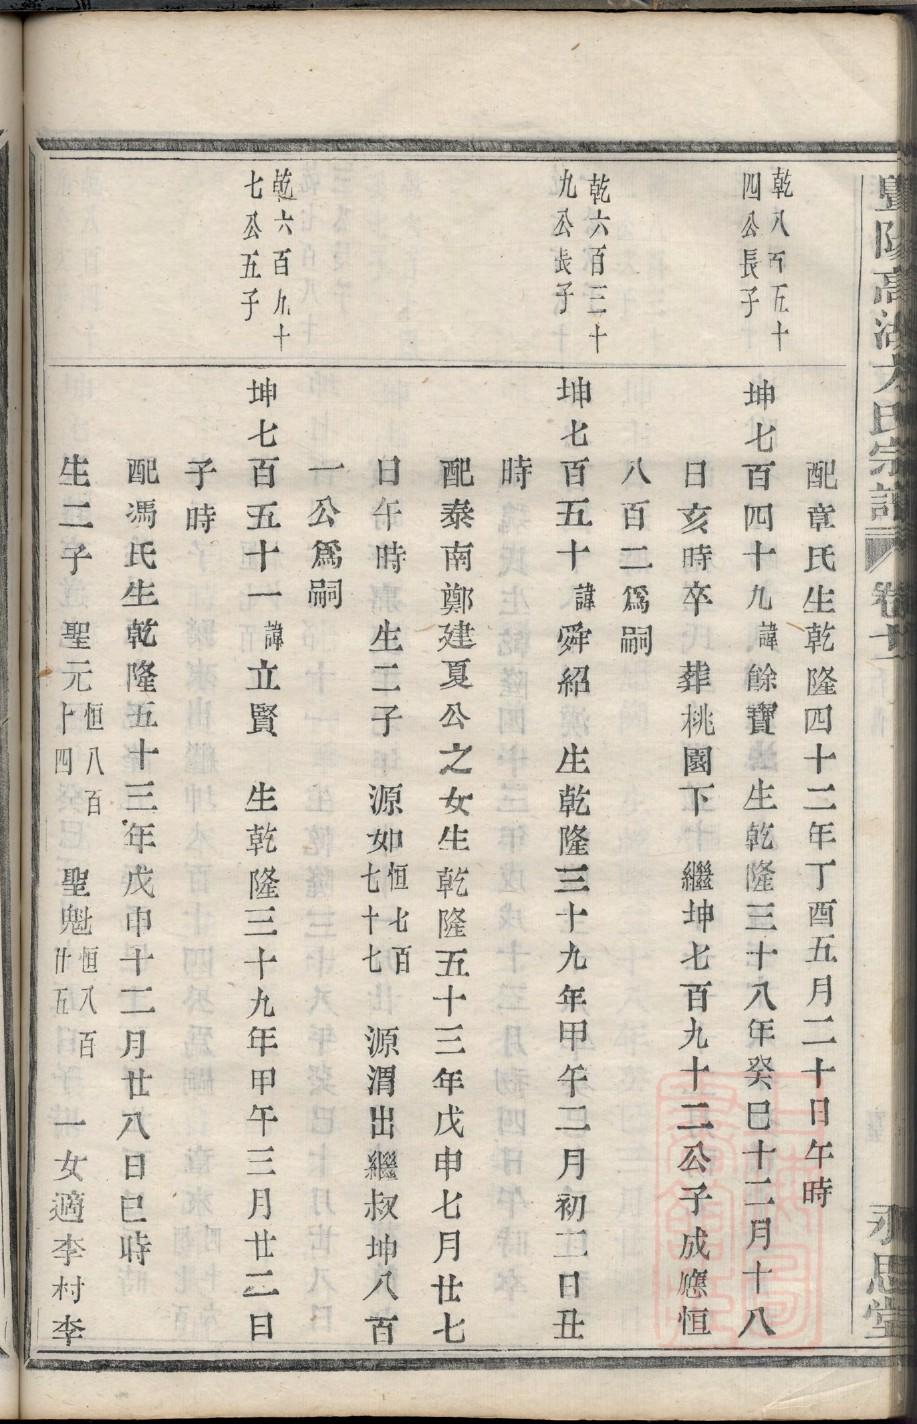 暨陽高湖方氏宗譜 永思堂
配章氏生乾隆四十二年丁酉五月二十日午時
乾八百五十四公長子
坤七百四十九諱餘寶生乾隆三十八年癸巳十二月十八
日亥時卒葬桃園下繼坤七百九十二公子成應恒
八百二爲嗣
乾六百三十九公長子
坤七百五十諱舜紹生乾隆三十九年甲午二月初二日丑
時
配泰南鄭建夏公之女生乾隆五十三年戊申七月廿七
日午時生二子源如恒七百七十七源渭出繼叔坤八百
一公爲嗣
乾六百九十七公五子
坤七百五十一諱立賢生乾隆三十九年甲午三月廿二日
子時
配馮氏生乾隆五十三年戊申十二月廿八日巳時
生二子聖元恒八百十四聖魁恒八百廿五一女適李村李